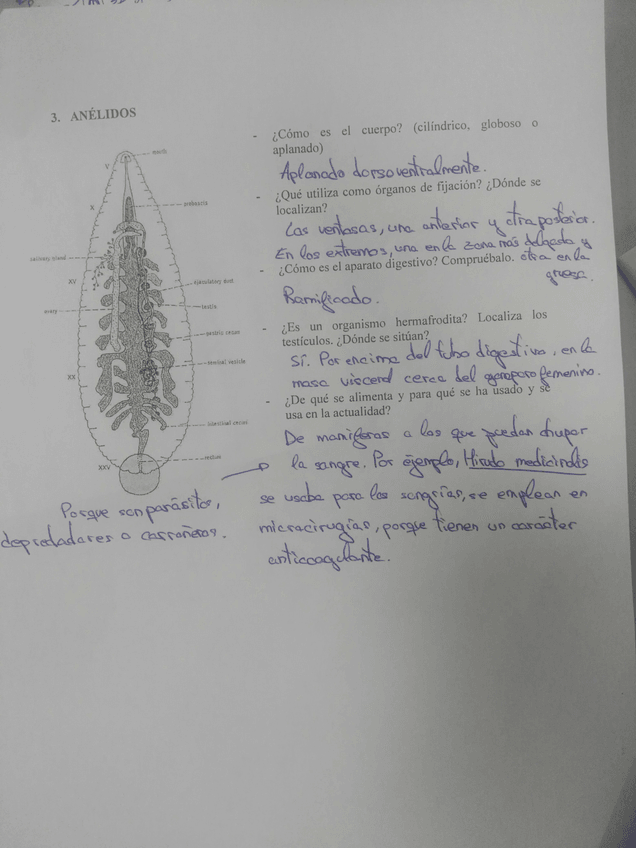 3. ANÉLIDOS
- ¿Cómo es el cuerpo? (cilíndrico, globoso o
aplanado)
Aplanado dorsoventralmente.
- ¿Qué utiliza como órganos de fijación? ¿Dónde se
localizan?
Las ventosas, una anterior y otra posterior.
En los extremos, una en la zona más delgada y
otra en la
gruesa.
- ¿Cómo es el aparato digestivo? Compruébalo.
Ramificado.
- ¿Es un organismo hermafrodita? Localiza los
testículos. ¿Dónde se sitúan?
Sí. Por encima del tubo digestivo, en la
masa visceral cerca del gonoporo femenino.
- ¿De qué se alimenta y para qué se ha usado y se
usa en la actualidad?
De mamíferos a los que puedan chupar
la sangre. Por ejemplo, Hirudo medicinalis
se usaba para las sangrías, se emplean en
microcirugías, porque tienen un carácter
anticoagulante.
Porque son parásitos,
depredadores o carroñeros.
mouth
V
X
proboscis
salivary gland
XV
ejaculatory duct
testis
ovary
gastric cecum
seminal vesicle
XX
intestinal cecum
rectum
XXV